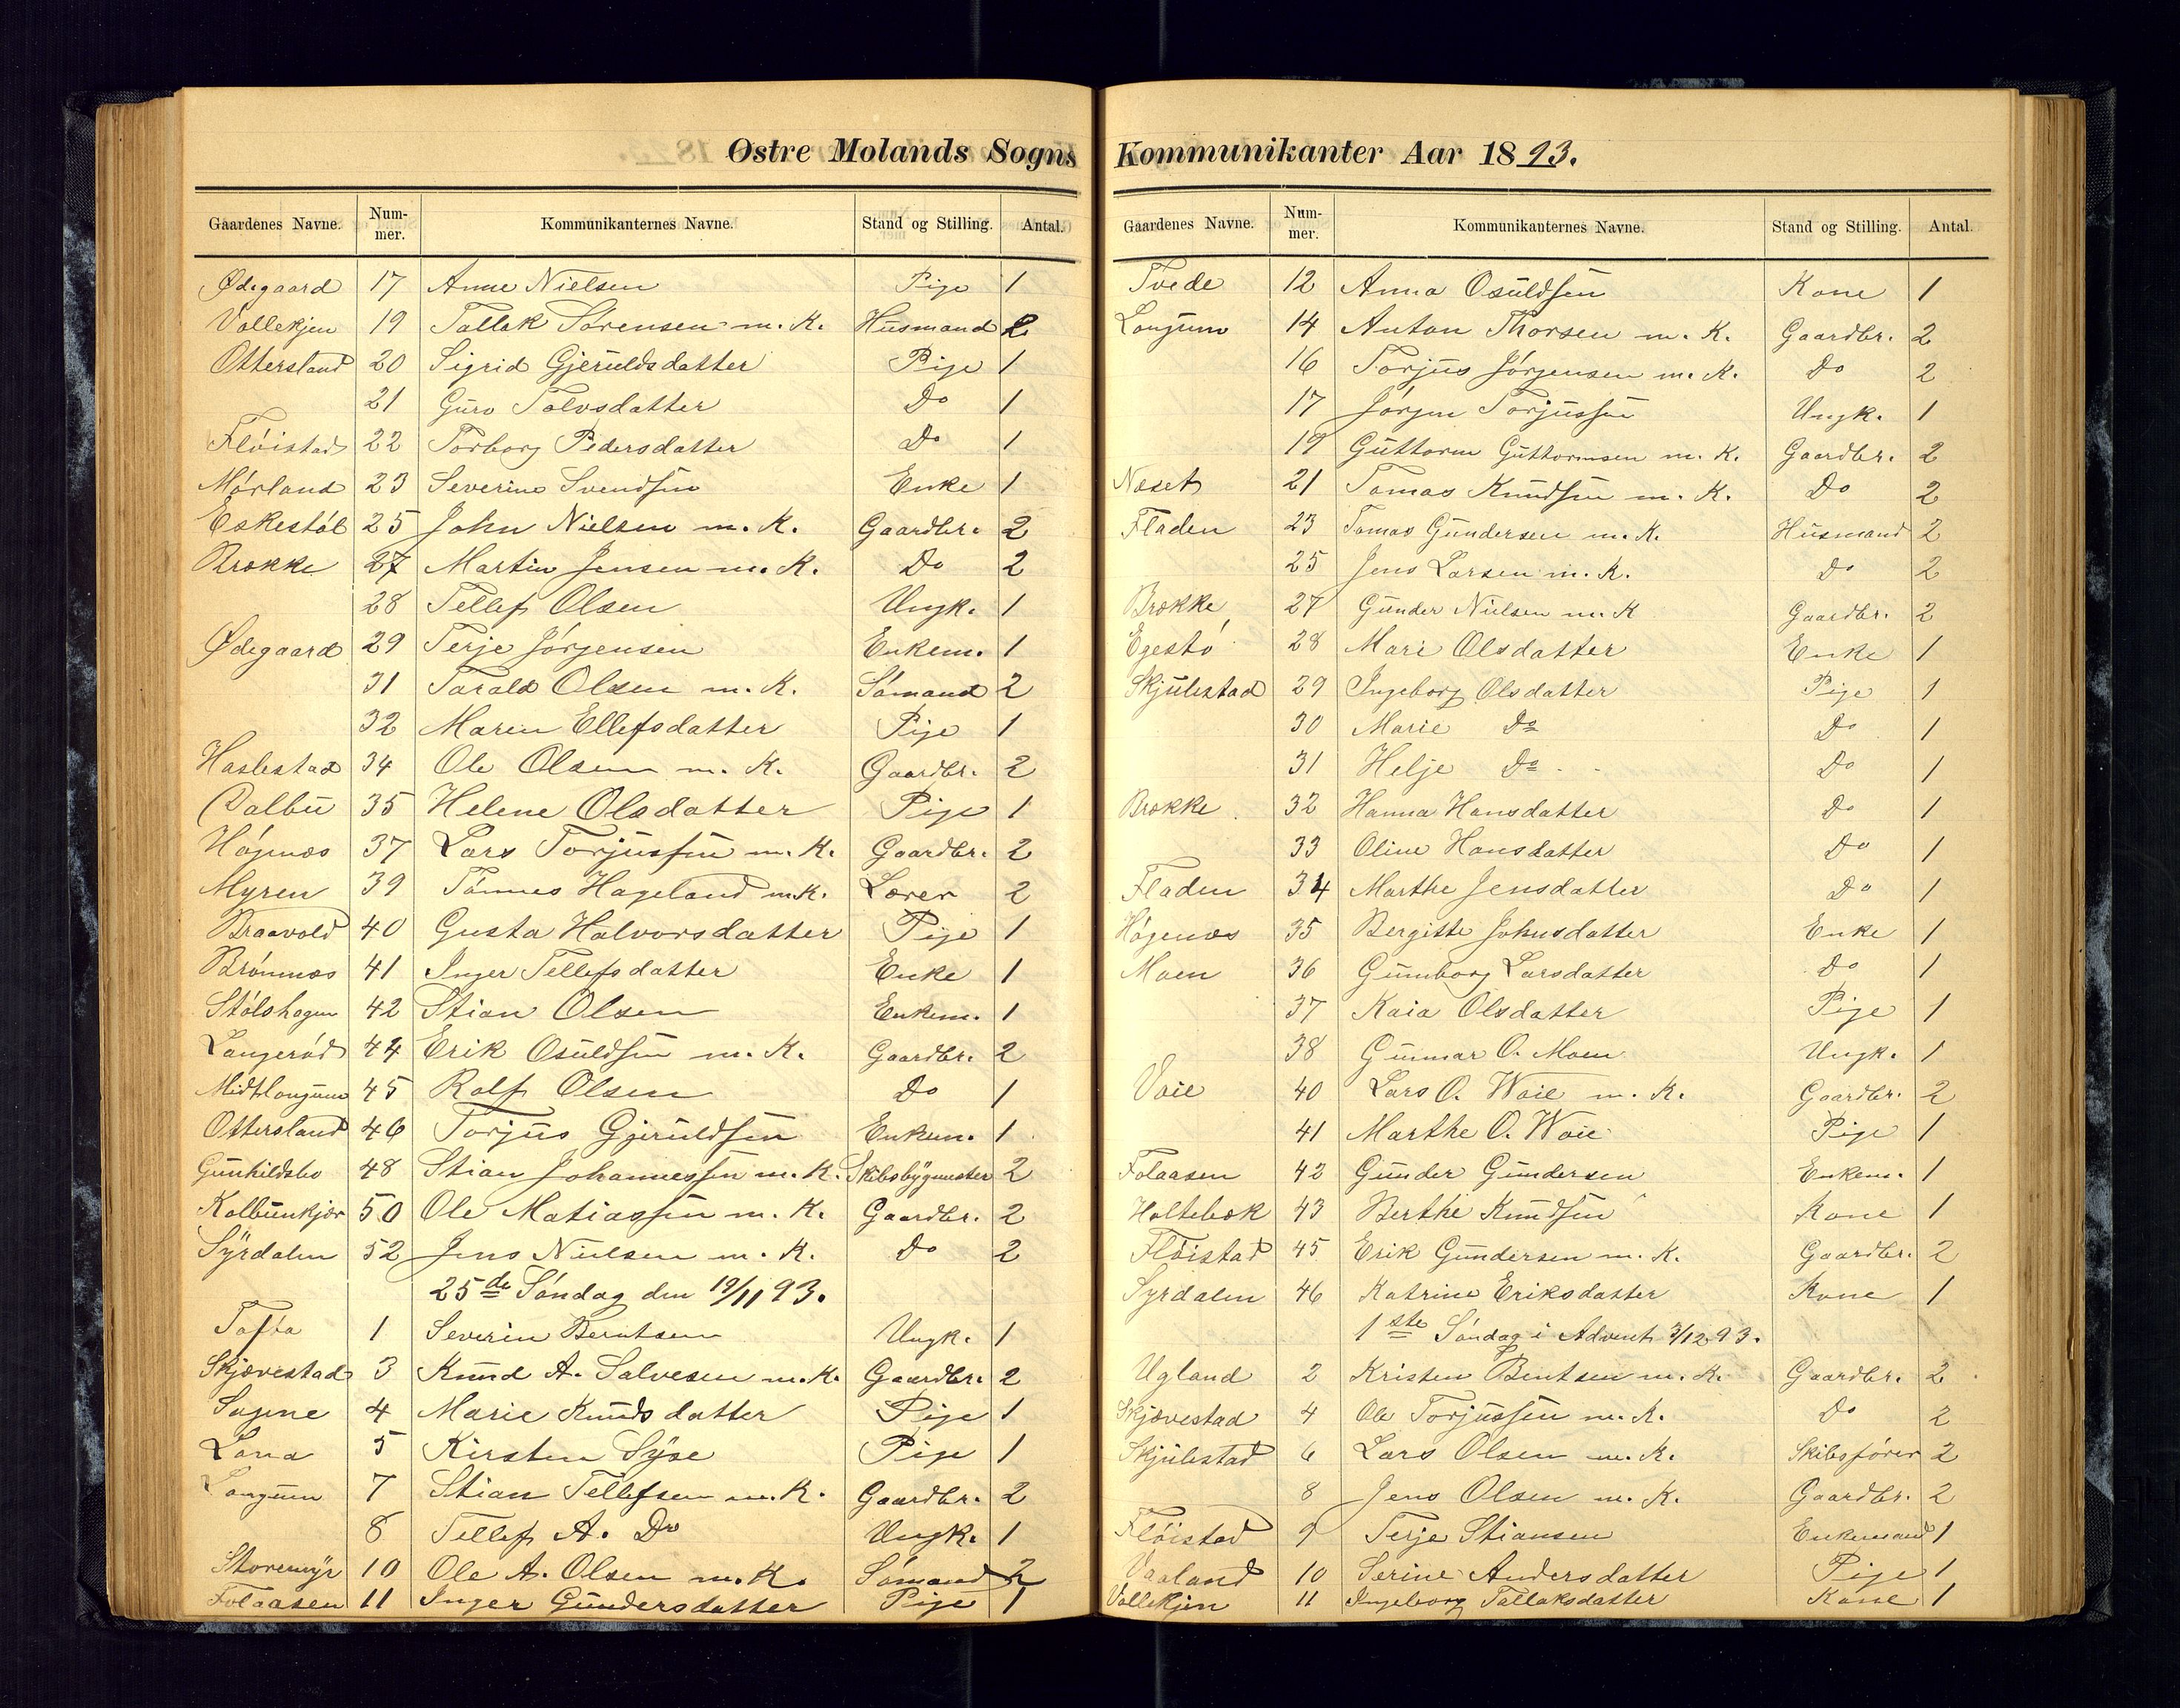 Østre Molands Sogns
Gaardenes Navne. Num-mer. Kommunikanternes Navne. Stand og Stilling. Antal.
Ødegaard 17 Anne Nielsen Pige 1
Vollekjen 19 Tallak Sørensen m. K. Husmand 2
Ottersland 20 Sigrid Gjeruldsdatter Pige 1
21 Guro Tolvsdatter Do 1
Fløistad 22 Torborg Pedersdatter Do 1
Mørland 23 Severine Svendsen Enke 1
Eskestøl 25 John Nielsen m. K. Gaardbr. 2
Brække 27 Martin Jensen m. K. Do 2
28 Tellef Olsen Ungk. 1
Ødegaard 29 Terje Jörgensen Enkem. 1
31 Tarald Olsen m. K. Sømand 2
32 Maren Ellefsdatter Pige 1
Haslestad 34 Ole Olsen m. K. Gaardbr. 2
Dalbu 35 Helene Olsdatter Pige 1
Høgnæs 37 Lars Torjussen m. K. Gaardbr. 2
Myren 39 Tønnes Hageland m. K. Lærer 2
Braavold 40 Gusta Halvorsdatter Pige 1
Brønnæs 41 Inger Tellefsdatter Enke 1
Stølshagen 42 Stian Olsen Enkem. 1
Langerød 44 Erik Osuldsen m. K. Gaardbr. 2
Midtlongum 45 Rolf Olsen Do 1
Ottersland 46 Torjus Gjeruldsen Enkem. 1
Gunhildsbo 48 Stian Johannessen m. K. Skibsbygmester 2
Kalbunkjær 50 Ole Matiassen m. K. Gaardbr. 2
Syrdalen 52 Jens Nielsen m. K. Do 2
25de Søndag den 19/11 93.
Tofta 1 Severin Berntsen Ungk. 1
Skjævestad 3 Knud A. Salvesen m. K. Gaardbr. 2
Sagene 4 Marie Knudsdatter Pige 1
Lona 5 Kirsten Syse Pige 1
Longum 7 Stian Tellefsen m. K. Gaardbr. 2
8 Tellef A. Do Ungk. 1
Storemyr 10 Ole A. Olsen m. K. Sømand 2
Folaasen 11 Inger Gundersdatter Pige 1
Kommunikanter Aar 1893.
Gaardenes Navne. Num-mer. Kommunikanternes Navne. Stand og Stilling. Antal.
Tvede 12 Anna Osuldsen Kone 1
Longum 14 Anton Thorsen m. K. Gaardbr. 2
16 Torjus Jörgensen m. K. Do 2
17 Jörgen Torjussen Ungk. 1
19 Guttorm Guttormsen m. K. Gaardbr. 2
Næset 21 Tomas Knudsen m. K. Do 2
Fladen 23 Tomas Gundersen m. K. Husmand 2
25 Jens Larsen m. K. Do 2
Brække 27 Gunder Nielsen m. K Gaardbr. 2
Egestø 28 Mari Olsdatter Enke 1
Skjulestad 29 Ingeborg Olsdatter Pige 1
30 Marie Do Do 1
31 Helje Do Do 1
Brække 32 Hanna Hansdatter Do 1
33 Oline Hansdatter Do 1
Fladen 34 Marthe Jensdatter Do 1
Høgenæs 35 Bergitte Johnsdatter Enke 1
Moen 36 Gunborg Larsdatter Do 1
37 Kaia Olsdatter Pige 1
38 Gunnar O. Moen Ungk. 1
Vaie 40 Lars O. Waie m. K. Gaardbr. 2
41 Marthe O. Waie Pige 1
Folaasen 42 Gunder Gundersen Enkem. 1
Holtebæk 43 Berthe Knudsen Kone 1
Fløistad 45 Erik Gundersen m. K. Gaardbr. 2
Syrdalen 46 Katrine Eriksdatter Kone 1
1ste Søndag i Advent 3/12 93.
Ugland 2 Kristen Bentsen m. K. Gaardbr. 2
Skjævestad 4 Ole Torjussen m. K. Do 2
Skjulestad 6 Lars Olsen m. K. Skibsfører 2
8 Jens Olsen m. K. Gaardbr. 2
Fløistad 9 Terje Stiansen Enkemand 1
Vaaland 10 Serine Andersdatter Pige 1
Vollekjen 11 Ingeborg Tallaksdatter Kone 1